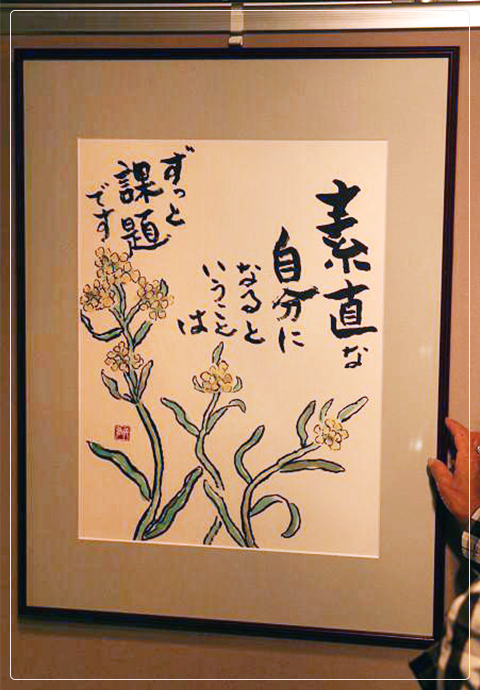 素直な
自分に
なると
いうこと
は
ずっと
課題
です